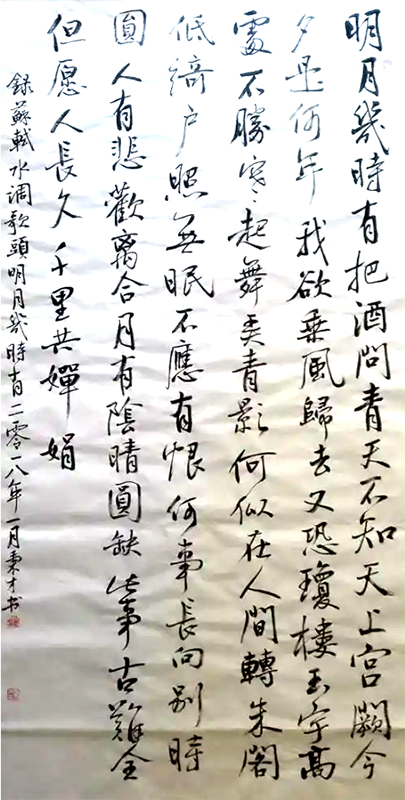 明月幾時有把酒問青天不知天上宮闕今
夕是何年我欲乗風歸去又恐瓊樓玉宇高
處不勝寒起舞弄青影何似在人間轉朱閣
低綺户照無眠不應有恨何事長向别時
圓人有悲歡離合月有陰晴圓缺此事古難全
但愿人長久千里共嬋娟
錄蘇軾水调歌頭明月幾時有二零一八年一月才书